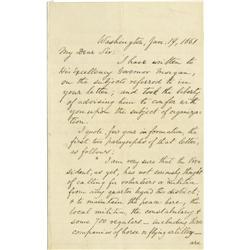 Washington, Jan. 19, 1861
My Dear Sir:
I have written to
His Excellency Governor Morgan,
on the subjects referred to in
your letter; and took the liberty
of advising him to confer with
you upon the subject of organiza-
tion.
I quote, for your information, the
first two paragraphs of that letter,
as follows:
"I am very sure that the Pre-
sident, as yet, has not seriously thought
of calling for volunteers or militia
from any quarter beyond this district;
& to maintain the peace here, the
local militia, the constabulary &
some 700 regulars — including three
companies of horse or flying artillery —
are